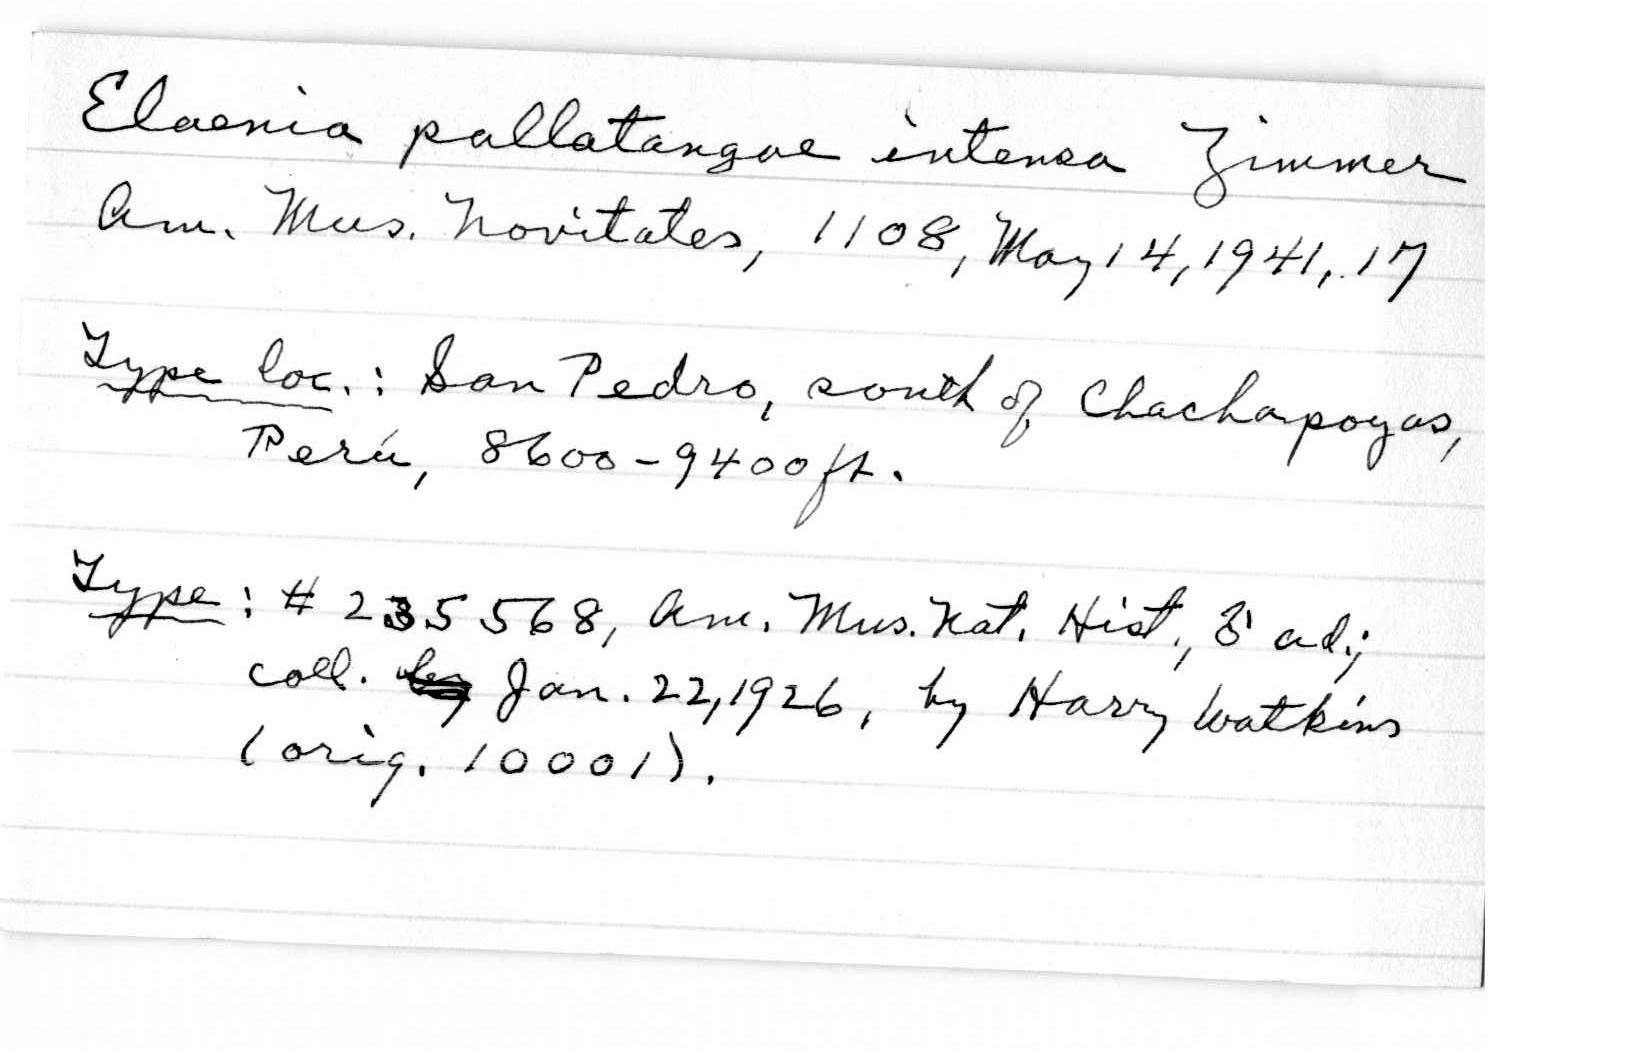 Elaenia pallatangae intensa Zimmer
Am. Mus. Novitates, 1108, May 14, 1941, 17
Type loc.: San Pedro, south of Chachapoyas,
Perú, 8600-9400 ft.
Type: # 235568, Am. Mus. Nat. Hist., ♂ ad.;
coll. by Jan. 22, 1926, by Harry Watkins
(orig. 10001).